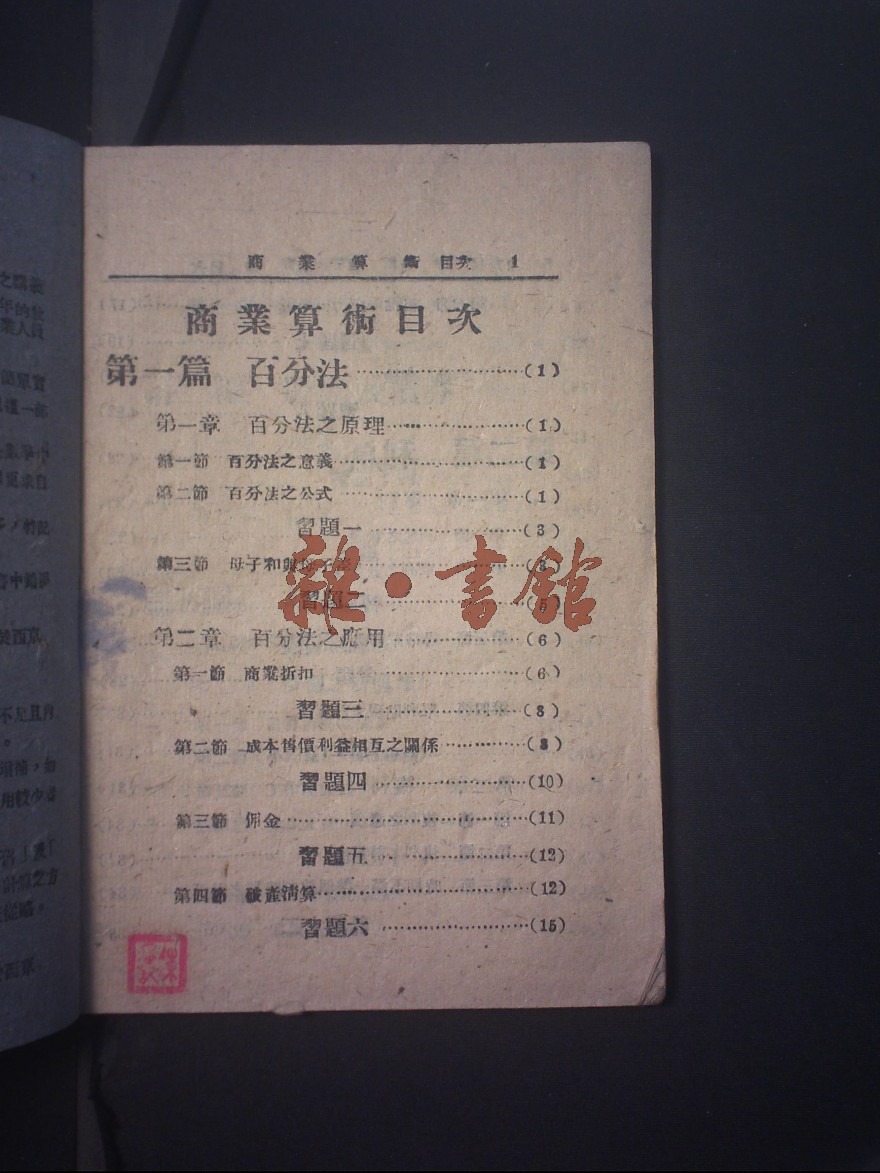 商業算術目次 1
商業算術目次
第一篇 百分法……(1)
第一章 百分法之原理……(1)
第一節 百分法之意義……(1)
第二節 百分法之公式……(1)
習題一……(3)
第三節 母子和與母子差……(3)
習題二……(5)
第二章 百分法之應用……(6)
第一節 商業折扣……(6)
習題三……(8)
第二節 成本售價利益相互之關係……(8)
習題四……(10)
第三節 佣金……(11)
習題五……(12)
第四節 破產淸算……(12)
習題六……(15)
雜·書館
年的教
業人員
於西京
不足且內
增補，如